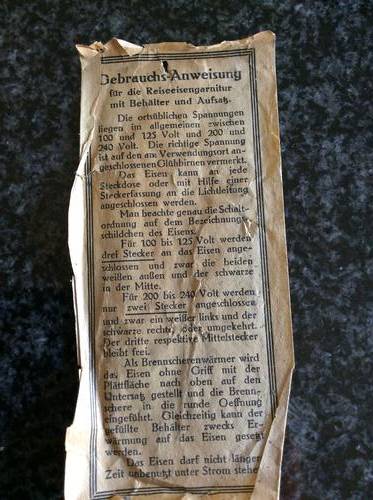 Gebrauchs-Anweisung
für die Reiseeisengarnitur
mit Behälter und Aufsatz.
Die ortsüblichen Spannungen
liegen im allgemeinen zwischen
100 und 125 Volt und 200 und
240 Volt. Die richtige Spannung
ist auf den am Verwendungsort an-
geschlossenen Glühbirnen vermerkt.
Das Eisen kann an jede
Steckdose oder mit Hilfe einer
Steckerfassung an die Lichtleitung
angeschlossen werden.
Man beachte genau die Schalt-
ordnung auf dem Bezeichnungs-
schildchen des Eisens.
Für 100 bis 125 Volt werden
drei Stecker an das Eisen ange-
schlossen und zwar die beiden
weißen außen und der schwarze
in der Mitte.
Für 200 bis 240 Volt werden
nur zwei Stecker angeschlossen
und zwar ein weißer links und der
schwarze rechts, oder umgekehrt.
Der dritte respektive Mittelstecker
bleibt frei.
Als Brennscherenwärmer wird
das Eisen ohne Griff mit der
Plättfläche nach oben auf den
Untersatz gestellt und die Brenn-
schere in die runde Oeffnung
eingeführt. Gleichzeitig kann der
gefüllte Behälter zwecks Er-
wärmung auf das Eisen gesetzt
werden.
Das Eisen darf nicht länger
Zeit unbenutzt unter Strom stehe